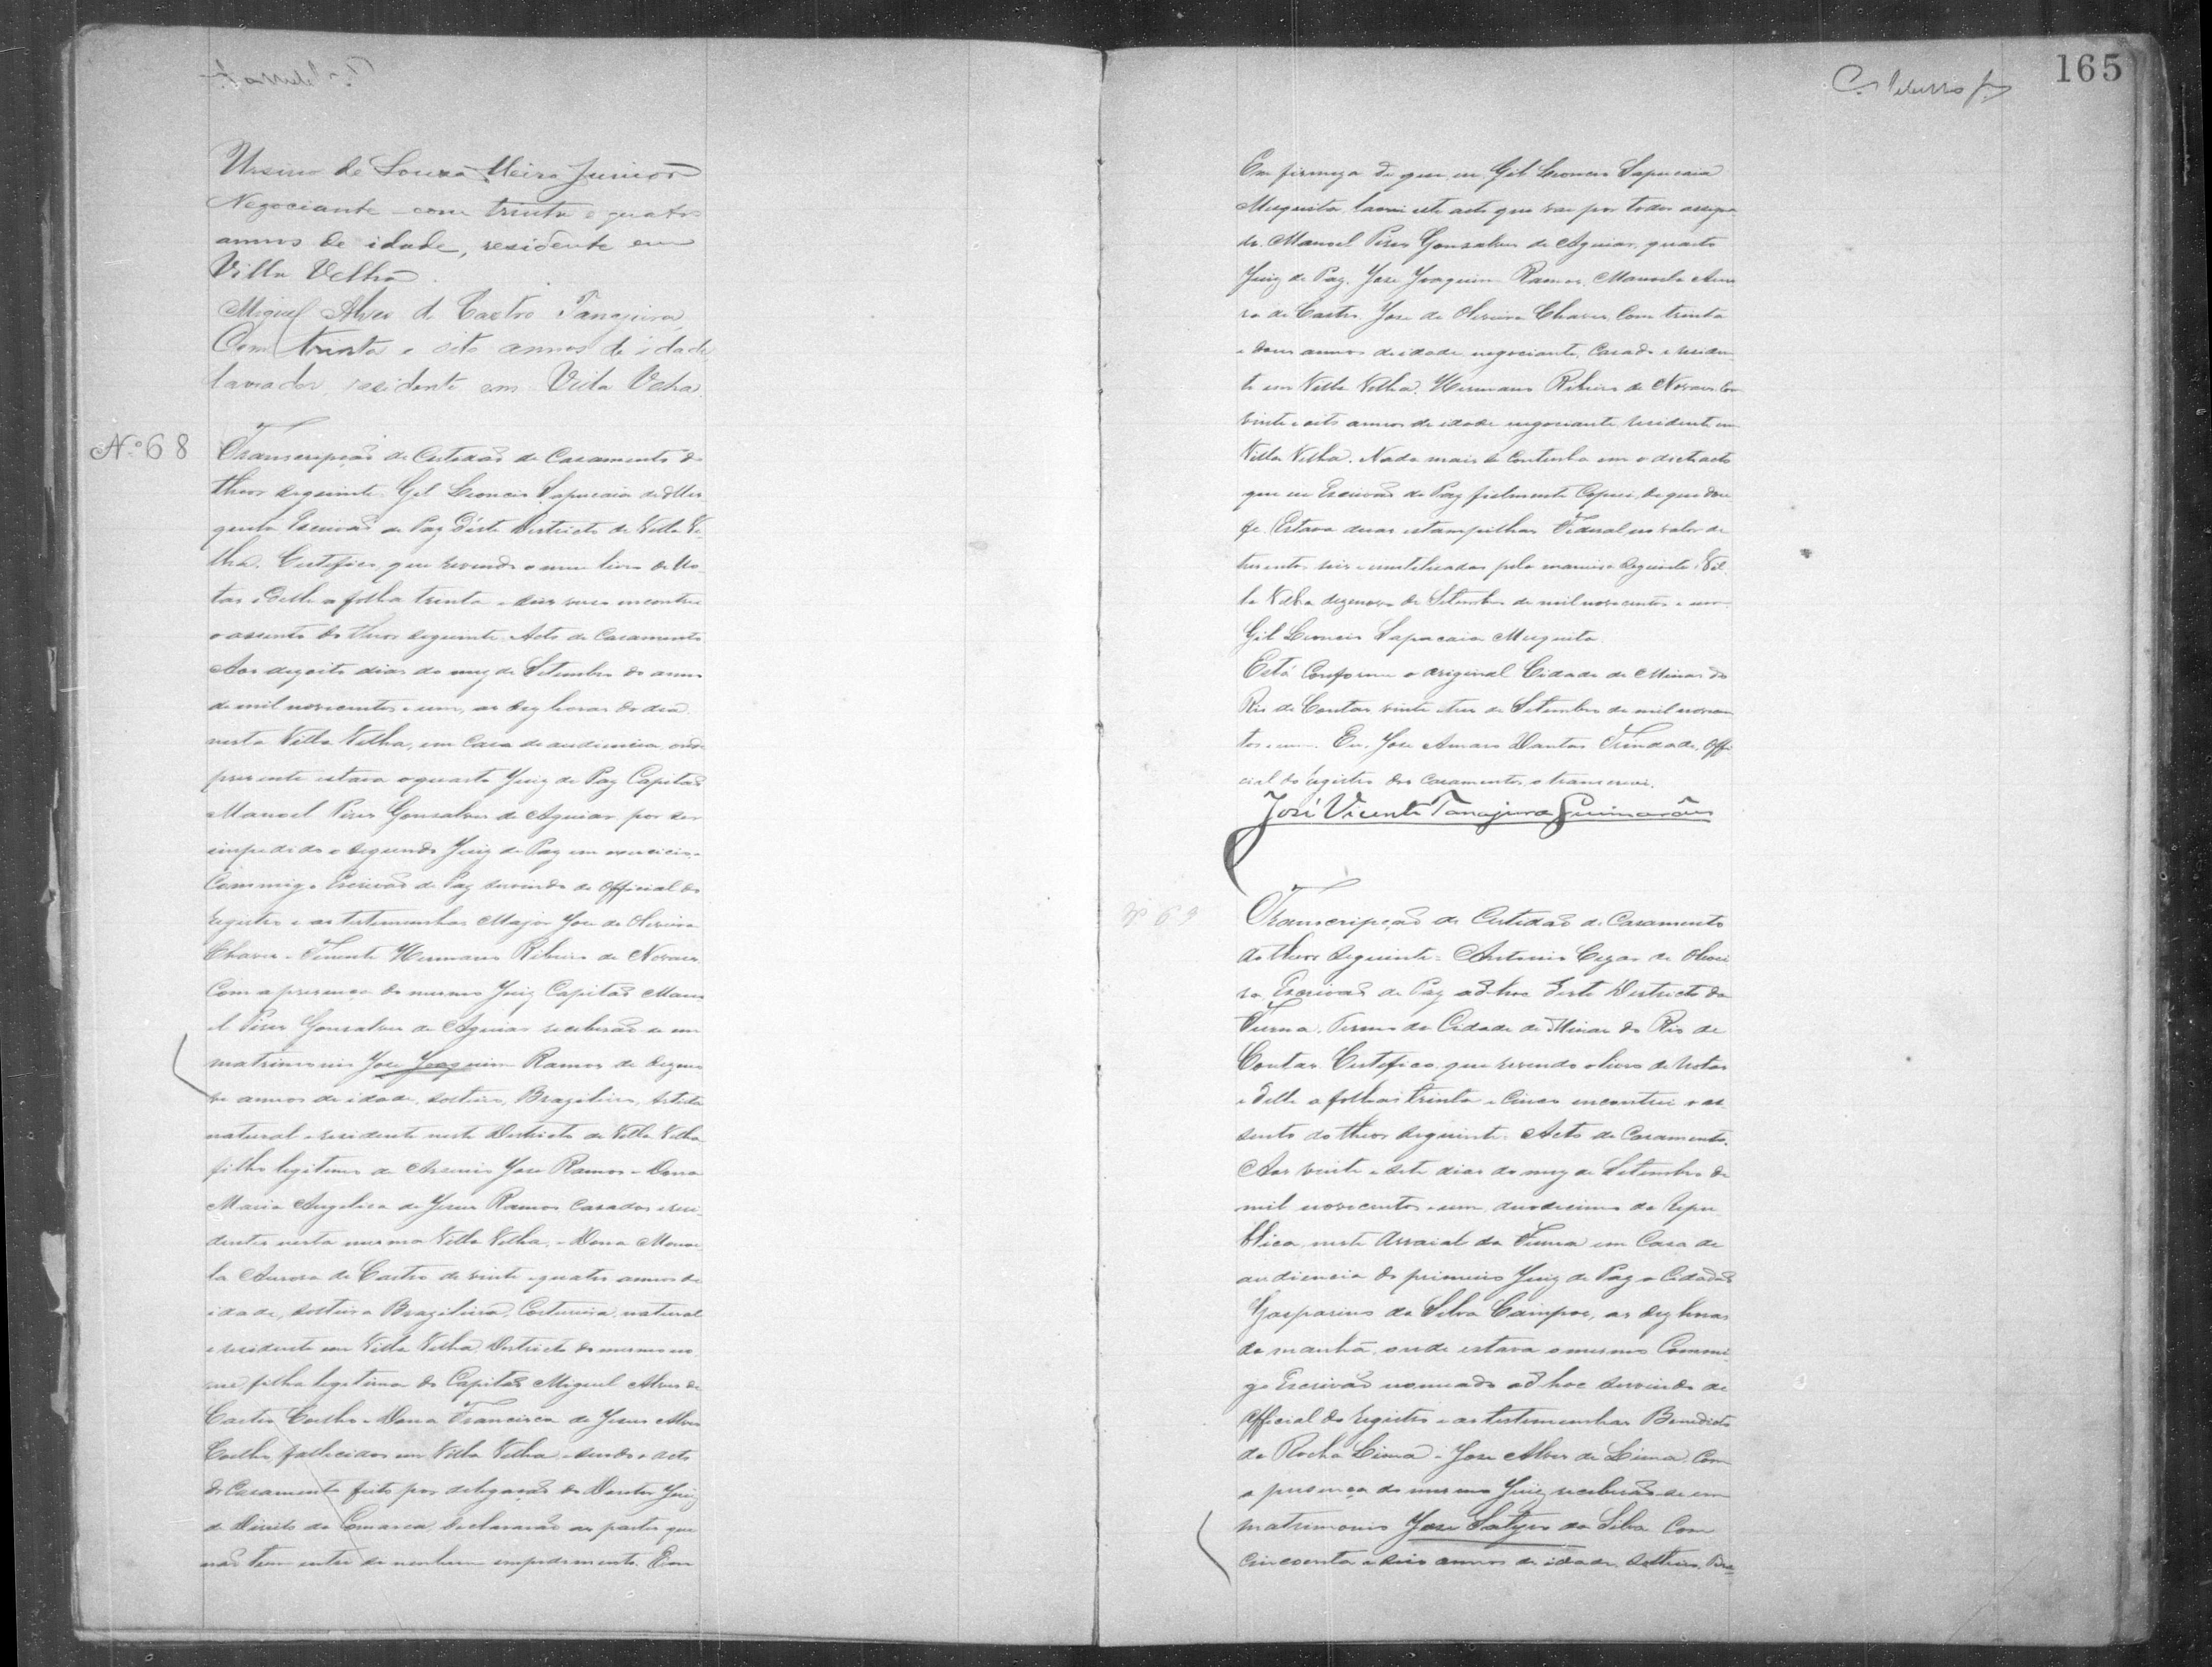 Ursino de Souza Meira Junior
Negociante com trinta e quatro
annos de idade, residente em
Villa Velha.
Miguel Alves de Castro Tanajura,
Com trinta e oito annos de idade
lavrador, residente em Villa Velha.
Nº 68
Transcripção de Certidão de Casamento do
theor seguinte. Gil Leoncio Sapucaia de Mes
quita Escrivão de Paz d'este Districto de Villa Ve
lha. Certifico, que revendo o meu livro de No
tas e delle a folha trinta e seis verso encontrei
o assento do theor seguinte. Acto de Casamento
Aos dezoito dias do mez de Setembro do anno
de mil novecentos e um, as dez horas do dia
nesta Villa Velha, em Casa de audiencia, onde
presente estava o quarto Juiz de Paz Capitão
Manoel Pires Gonsalves de Aguiar, por ser
impedido o segundo Juiz de Paz em exercicio
Commigo Escrivão de Paz servindo de Official do
registro e as testemunhas Major Jose de Oliveira
Chaves e Tenente Hermano Ribeiro de Novaes
Com a presença do mesmo Juiz Capitão Mano
el Pires Gonsalves de Aguiar receberão se em
matrimonio Jose Joaquim Ramos de dezeno
ve annos de idade, solteiro, Brazileiro, Artista
natural e residente neste Districto de Villa Velha
filho legitimo de Arsenio Jose Ramos e Dona
Maria Angelica de Jesus Ramos Casados e resi
dentes nesta mesma Villa Velha, e Dona Manoe
la Aurora de Castro de vinte e quatro annos de
idade, solteira Brazileira, Costureira, natural
e residente em Villa Velha Districto do mesmo no
me, filha legitima do Capitão Miguel Alves de
Castro Coelho e Dona Francisca de Jesus Alves
Coelho fallecidos em Villa Velha e sendo o acto
do Casamento feito por delegação do Doutor Juiz
de Direito da Comarca, declararão as partes que
não tem entre si nenhum impedimento. Em
165
Em firmeza do que eu Gil Leoncio Sapucaia
Mesquita, lavrei este acto que vae por todos assigna
do. Manoel Pires Gonsalves de Aguiar, quarto
Juiz de Paz. Jose Joaquim Ramos, Manoela Auro
ra de Castro. Jose de Oliveira Chaves, Com trinta
e dous annos de idade negociante, Casado e residen
te em Villa Velha. Hermano Ribeiro de Novaes, Com
vinte e oito annos de idade negociante, residente em
Villa Velha. Nada mais se Continha em o dito acto
que eu Escrivão de Paz fielmente Copiei, do que dou
fe. Estava duas estampilhas Federal no valor de
trezentos reis e inutilisadas pela maneira seguinte: Vil
la Velha dezenove de Setembro de mil novecentos e um
Gil Leoncio Sapucaia Mesquita.
Está Conforme o original Cidade de Minas do
Rio de Contas vinte e tres de Setembro de mil novecen
tos e um. Eu, Jose Amaro Dantas Trindade, Offi
cial do registro dos casamentos, o transcrevi.
José Vicente Tanajura Guimarães
Nº 69
Transcripção de Certidão de Casamento
do theor seguinte. Antonio Cezar de Olivei
ra Escrivão de Paz ad hoc deste Districto da
Furna. Termo da Cidade de Minas do Rio de
Contas. Certifico, que revendo o livro de notas
e delle a folhas trinta e cinco encontrei o as
sento do theor seguinte: Acto de Casamento.
Aos vinte e sete dias do mez de Setembro de
mil novecentos e um, duodecimo da Repu
blica, neste Arraial da Furna em Casa de
audiencia do primeiro Juiz de Paz o Cidadão
Gasparino da Silva Campos, as dez horas
da manhã, onde estava o mesmo Commi
go Escrivão nomeado ad hoc servindo de
Official do registro e as testemunhas Benedicto
da Rocha Lima e Jose Alves de Lima. Com
a presença do mesmo Juiz receberão-se em
matrimonio Jose Satyro da Silva Com
cincoenta e seis annos de idade, solteiro, Bra